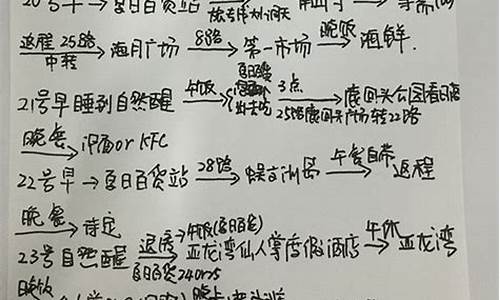 20号早→夏日百货站
返程 25路 中转 海月广场 8路 第一市场 晚饭 海鲜.
21号早睡到自然醒 午饭 夏日百货 出去吃 3点 鹿回头公园看日落
25路鹿回头广场转22路
晚餐 泡面or KFC
22号早→夏日百货站 28路 蜈支洲岛 午餐自带 返程
晚餐 待定
23号自然醒 退房→午饭(夏日百货) 亚龙湾仙人掌度假酒店 午休 亚龙湾
夏日百货24or25
晚饭